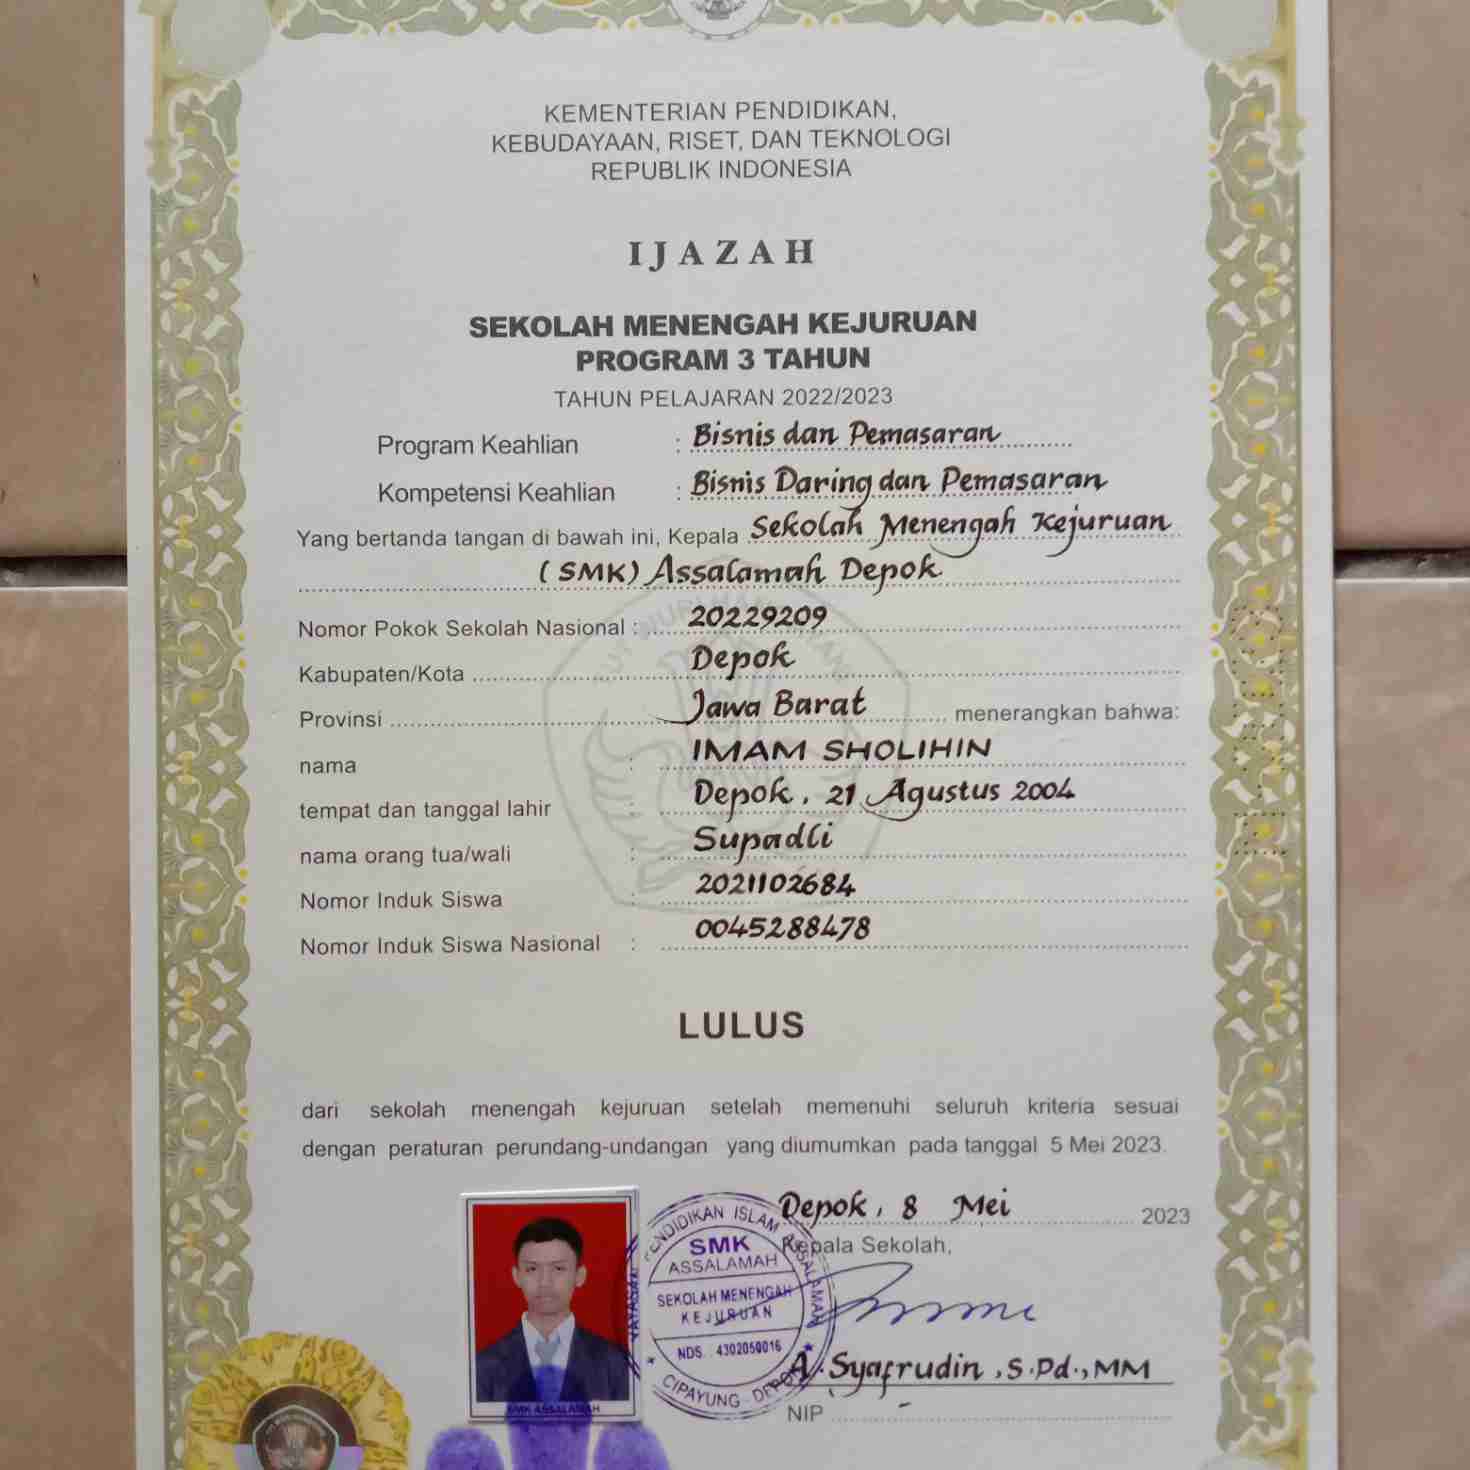 KEMENTERIAN PENDIDIKAN,
KEBUDAYAAN, RISET, DAN TEKNOLOGI
REPUBLIK INDONESIA
IJAZAH
SEKOLAH MENENGAH KEJURUAN
PROGRAM 3 TAHUN
TAHUN PELAJARAN 2022/2023
Program Keahlian : Bisnis dan Pemasaran
Kompetensi Keahlian : Bisnis Daring dan Pemasaran
Yang bertanda tangan di bawah ini, Kepala Sekolah Menengah Kejuruan
(SMK) Assalamah Depok
Nomor Pokok Sekolah Nasional : 20229209
Kabupaten/Kota Depok
Provinsi Jawa Barat menerangkan bahwa:
nama : IMAM SHOLIHIN
tempat dan tanggal lahir : Depok, 21 Agustus 2004
nama orang tua/wali : Supadli
Nomor Induk Siswa : 2021102684
Nomor Induk Siswa Nasional : 0045288478
LULUS
dari sekolah menengah kejuruan setelah memenuhi seluruh kriteria sesuai
dengan peraturan perundang-undangan yang diumumkan pada tanggal 5 Mei 2023.
Depok, 8 Mei 2023
Kepala Sekolah,
YAYASAN PENDIDIKAN ISLAM ASSALAMAH
SMK
ASSALAMAH
SEKOLAH MENENGAH
KEJURUAN
NDS. 4302050016
CIPAYUNG - DEPOK
SMK ASSALAMAH
A. Syafrudin, S.Pd., MM
NIP -